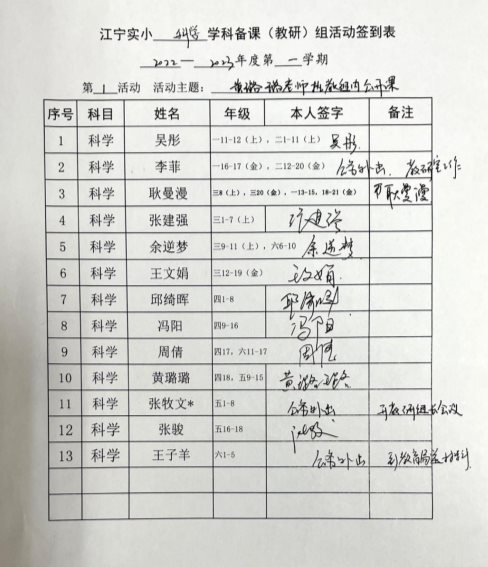 江宁实小 科学 学科备课（教研）组活动签到表
2022—2023年度第 一 学期
第 1 活动 活动主题：黄璐璐老师执教组内公开课
序号 科目 姓名 年级 本人签字 备注
1 科学 吴彤 一11-12（上），二1-11（上） 吴彤
2 科学 李菲 一16-17（金），二12-20（金） 公务外出
3 科学 耿曼漫 三8（上），三20（金），一13-15，18-21（金） 耿曼漫
4 科学 张建强 三1-7（上） 张建强
5 科学 余逆梦 三9-11（上），六6-10 余逆梦
6 科学 王文娟 三12-19（金） 王文娟
7 科学 邱绮晖 四1-8 邱绮晖
8 科学 冯阳 四9-16 冯阳
9 科学 周倩 四17，六11-17 周倩
10 科学 黄璐璐 四18，五9-15 黄璐璐
11 科学 张牧文* 五1-8 公务外出 开教研组长会议
12 科学 张骏 五16-18 张骏
13 科学 王子羊 六1-5 公务外出 到教育局送材料